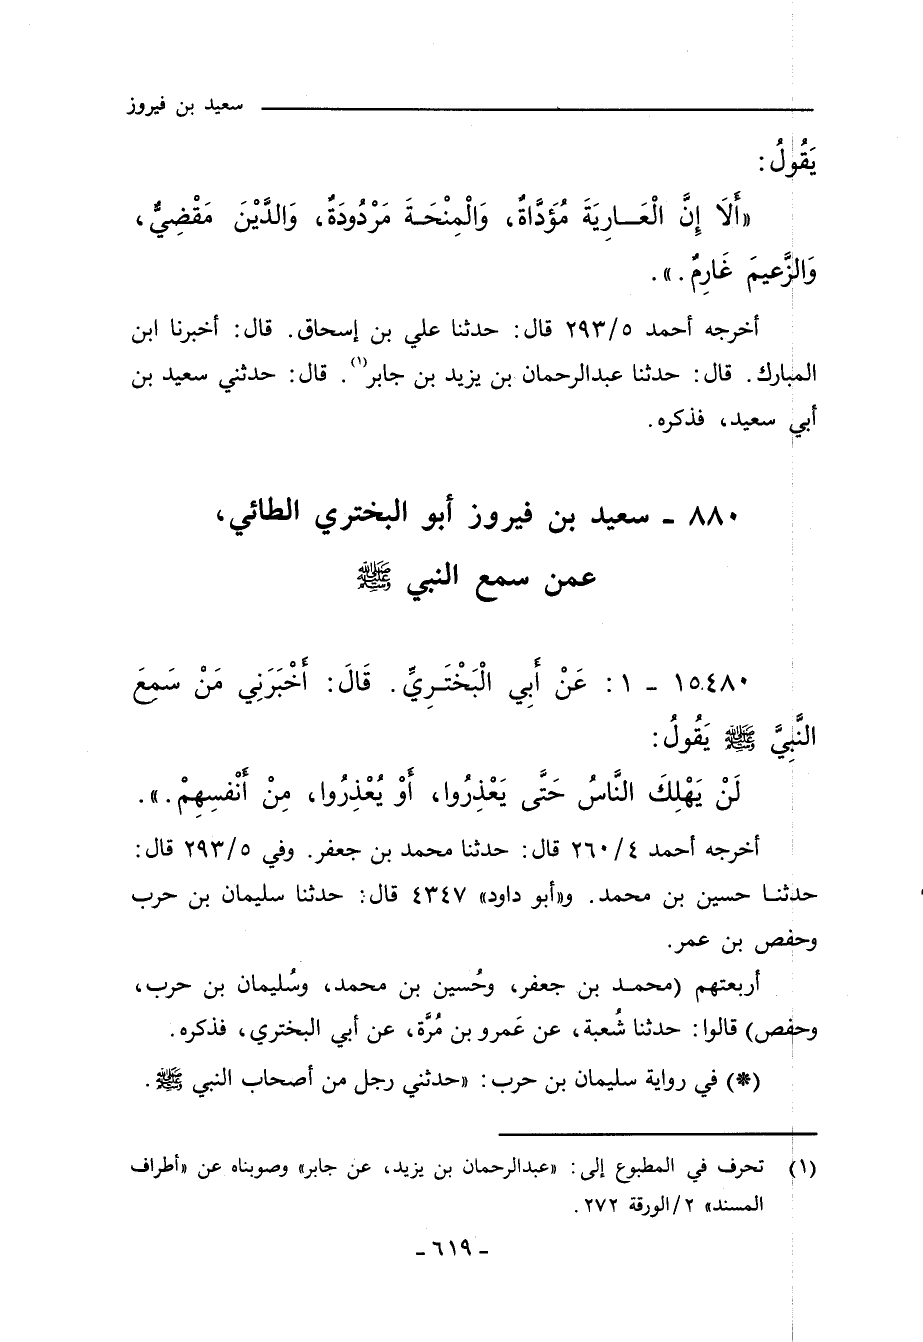 سعيد بن فيروز
يَقُولُ:
«أَلَا إِنَّ الْعَـــارِيَةَ مُؤَدَّاةٌ، وَالْمِنْحَـةَ مَرْدُودَةٌ، وَالدَّيْنَ مَقْضِيٌّ،
وَالزَّعِيمَ غَارِمٌ.».
أخرجه أحمد ٢٩٣/٥ قال: حدثنا علي بن إسحاق. قال: أخبرنا ابن
المبارك. قال: حدثنا عبدالرحمان بن يزيد بن جابر(١). قال: حدثني سعيد بن
أبي سعيد، فذكره.
٨٨٠ - سعيد بن فيروز أبو البختري الطائي،
عمن سمع النبي ﷺ
١٥٤٨٠ - ١: عَنْ أَبِي الْبَخْتَـرِيِّ. قَالَ: أَخْبَرَنِي مَنْ سَمِعَ
النَّبِيَّ ﷺ يَقُولُ:
لَنْ يَهْلِكَ النَّاسُ حَتَّى يَعْذِرُوا، أَوْ يُعْذِرُوا، مِنْ أَنْفسِهِمْ.».
أخرجه أحمد ٢٦٠/٤ قال: حدثنا محمد بن جعفر. وفي ٢٩٣/٥ قال:
حدثنـا حسين بن محمد. و«أبو داود» ٤٣٤٧ قال: حدثنا سليمان بن حرب
وحفص بن عمر.
أربعتهم (محمـد بن جعفر، وحُسين بن محمد، وسُليمان بن حرب،
وحفص) قالوا: حدثنا شُعبة، عن عَمرو بن مُرَّة، عن أبي البختري، فذكره.
(*) في رواية سليمان بن حرب: «حدثني رجل من أصحاب النبي ﷺ.
(١) تحرف في المطبوع إلى: «عبدالرحمان بن يزيد، عن جابر» وصوبناه عن «أطراف
المسند» ٢/الورقة ٢٧٢.
- ٦١٩ -